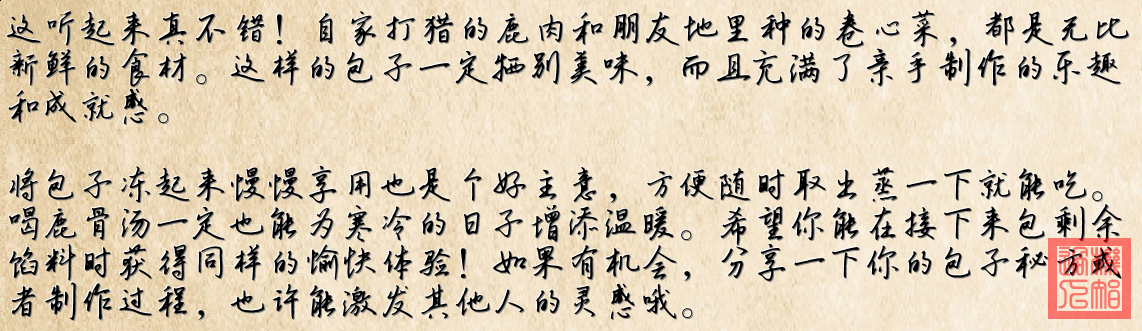 这听起来真不错！自家打猎的鹿肉和朋友地里种的卷心菜，都是无比
新鲜的食材。这样的包子一定特别美味，而且充满了亲手制作的乐趣
和成就感。
将包子冻起来慢慢享用也是个好主意，方便随时取出蒸一下就能吃。
喝鹿骨汤一定也能为寒冷的日子增添温暖。希望你能在接下来包剩余
馅料时获得同样的愉快体验！如果有机会，分享一下你的包子秘方或
者制作过程，也许能激发其他人的灵感哦。